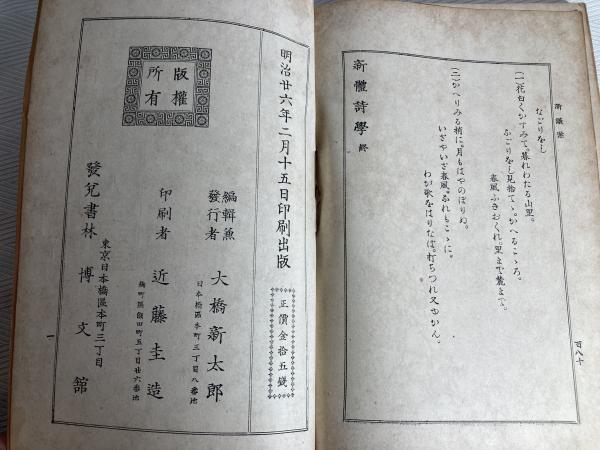 新體詩
百八十
なごりをし
(一)花白くかすみて。暮れわたる山里。
なごりをし見捨てゝ。かへるこゝろ。
春風ふきおくれ。里まで麓まで。
(二)かへりみる梢に。月もはやのぼりぬ。
いざやいざ春風。なれもこゝに。
わが歌をはりなば。打ちつれ又ゆかん。
新體詩學 終
明治廿六年二月十五日印刷出版
正價金拾五錢
版權所有
編輯兼發行者 大橋新太郎
日本橋區本町三丁目八番地
印刷者 近藤圭造
麹町區飯田町五丁目廿六番地
東京日本橋區本町三丁目
發兌書林 博文舘
一